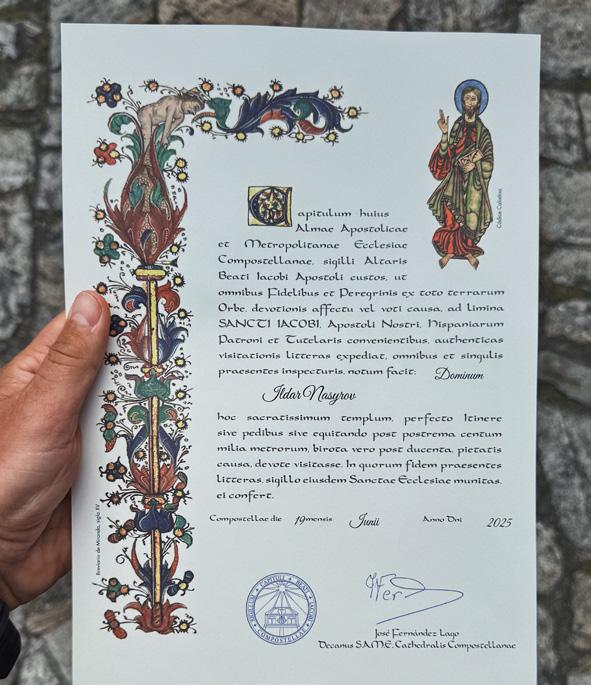 Capitulum huius
Almae Apostolicae
et Metropolitanae Ecclesiae
Compostellanae, sigilli Altaris
Beati Iacobi Apostoli custos, ut
omnibus Fidelibus et Peregrinis ex toto terrarum
Orbe, devotionis affectu vel voti causa, ad limina
SANCTI IACOBI, Apostoli Nostri, Hispaniarum
Patroni et Tutelaris convenientibus, authenticas
visitationis litteras expediat, omnibus et singulis
praesentes inspecturis, notum facit: Dominum
Ildar Nasyrov
hoc sacratissimum templum, perfecto Itinere
sive pedibus sive equitando post postrema centum
milia metrorum, birota vero post ducenta, pietatis
causa, devote visitasse. In quorum fidem praesentes
litteras, sigillo eiusdem Sanctae Ecclesiae munitas,
ei confert.
Compostellae die 19 mensis Junii Anno Dni 2025
José Fernández Lago
Decanus S.A.M.E. Cathedralis Compostellanae
Breviario de Miranda, siglo XV
Códice Calixtino